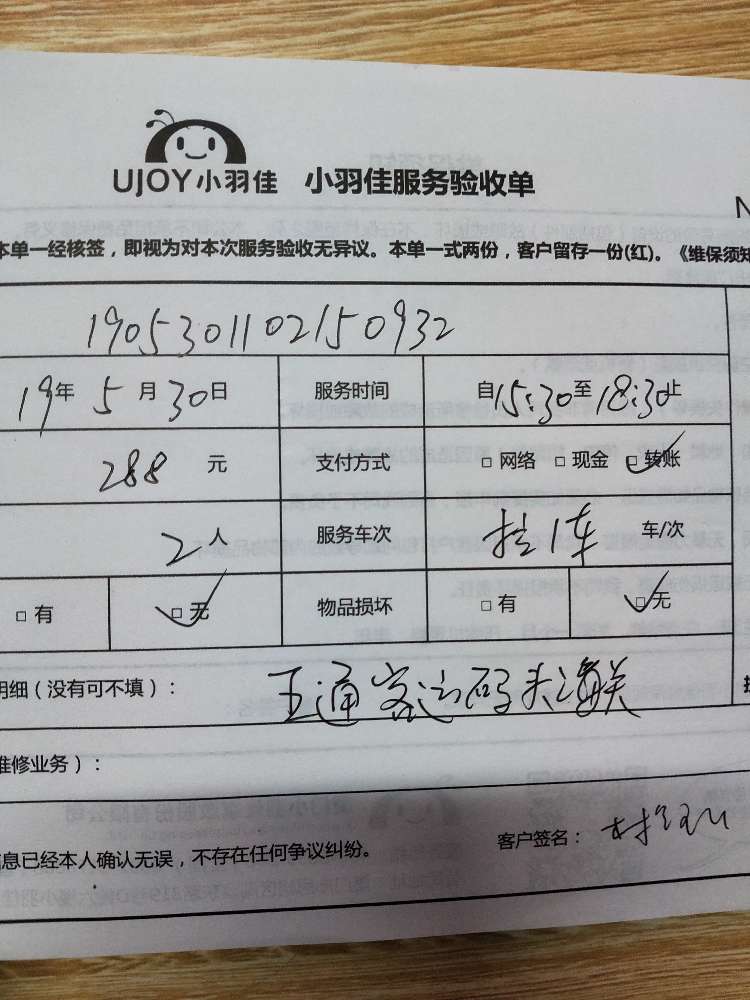 UJOY小羽佳 小羽佳服务验收单
N
本单一经核签，即视为对本次服务验收无异议。本单一式两份，客户留存一份(红)。《维保须知
1905301102150932
19年5月30日 服务时间 自15:30至18:30止
288元 支付方式 □网络 □现金 □转账
2人 服务车次 车/次
□有 □无 物品损坏 □有 □无
明细（没有可不填）： 五通客运码头海关
维修业务）：
息已经本人确认无误，不存在任何争议纠纷。 客户签名：